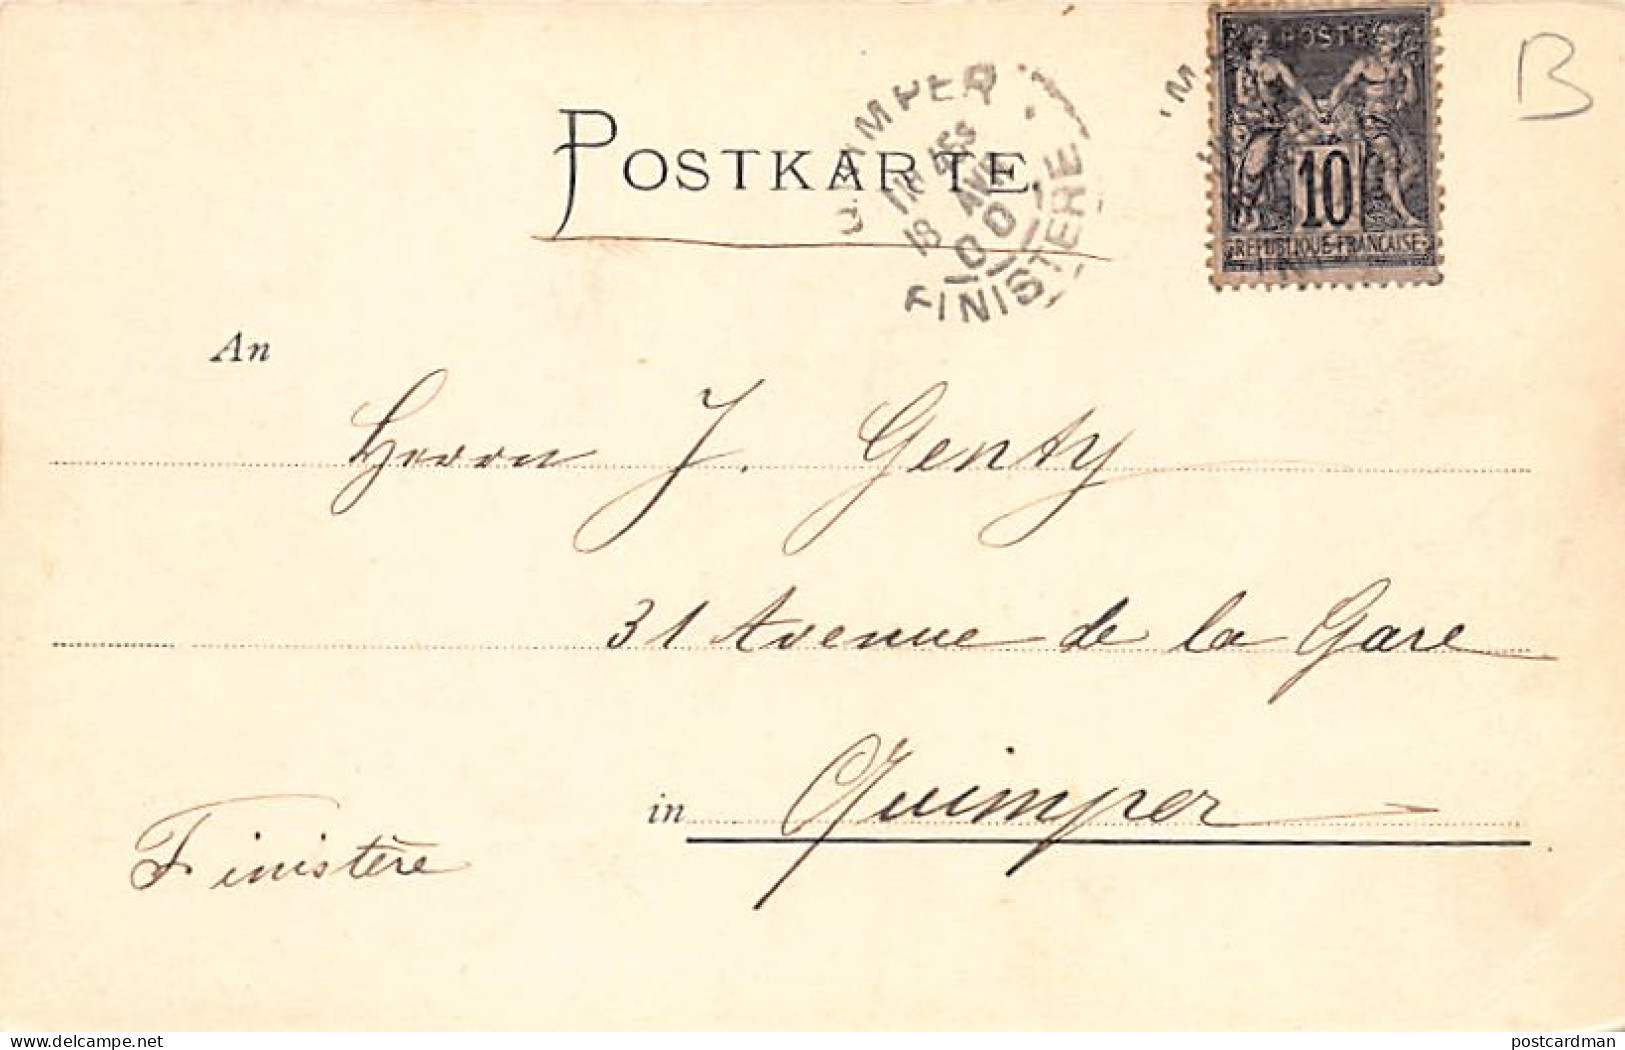 POSTES
10
REPUBLIQUE FRANCAISE
B
QUIMPER
18 AVRIL
00
FINISTERE
POSTKARTE
An
Herrn J. Genty
31 Avenue de la Gare
in Quimper
Finistère
delcampe.net
postcardman